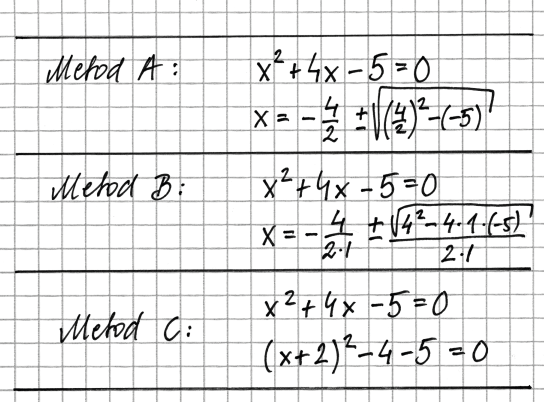 Metod A: x² + 4x - 5 = 0
x = - 4/2 ± √((4/2)² - (-5))
Metod B: x² + 4x - 5 = 0
x = - 4/(2·1) ± √(4² - 4·1·(-5))/(2·1)
x² + 4x - 5 = 0
Metod C:
(x+2)² - 4 - 5 = 0